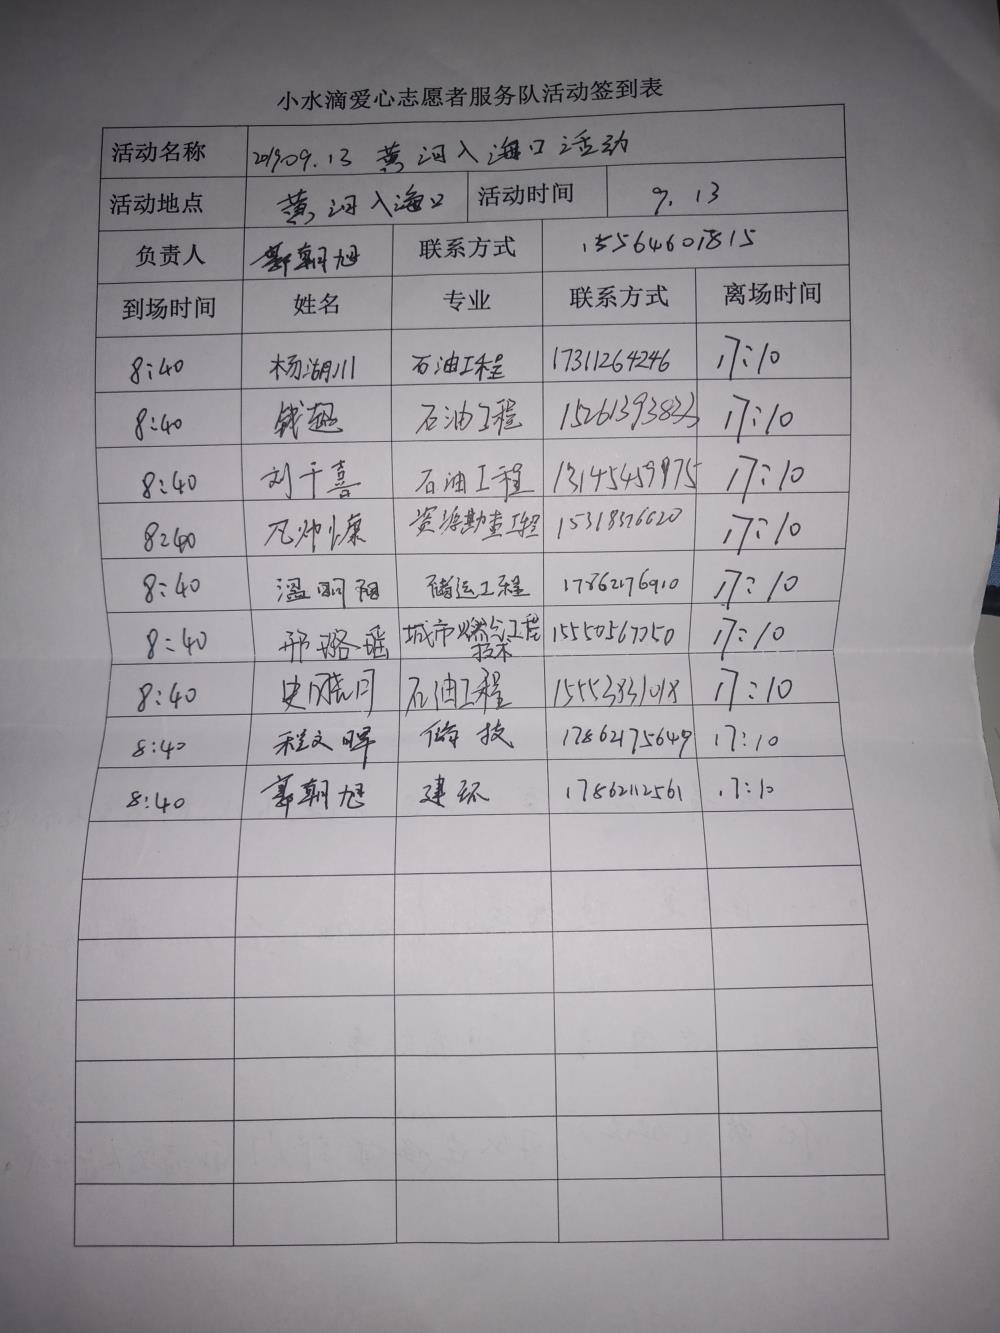 小水滴爱心志愿者服务队活动签到表
活动名称 201909.13 黄河入海口活动
活动地点 黄河入海口 活动时间 9.13
负责人 郭朝旭 联系方式 15564601815
到场时间 姓名 专业 联系方式 离场时间
8:40 杨湖川 石油工程 17311264246 17:10
8:40 钱超 石油工程 15261393833 17:10
8:40 刘千喜 石油工程 13145459975 17:10
8:40 资源勘查工程 17:10
8:40 温明阳 储运工程 17862176910 17:10
8:40 邢璐瑶 城市燃气工程技术 15550567250 17:10
8:40 史晓月 石油工程 15553831018 17:10
8:40 程文晖 储技 17862175649 17:10
8:40 郭朝旭 建环 17862112561 17:10